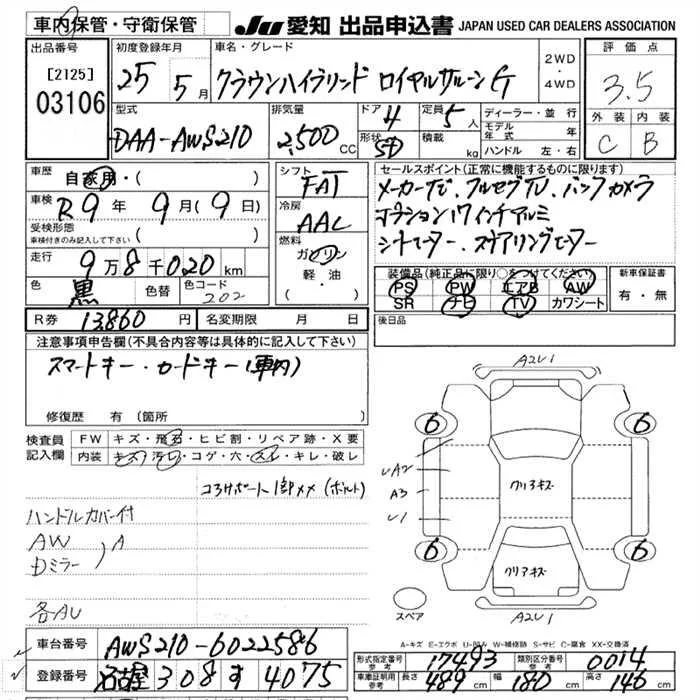 車内保管・守衛保管 JU 愛知 出品申込書 JAPAN USED CAR DEALERS ASSOCIATION
出品番号 初度登録年月 車名・グレード 2WD・4WD 評価点
[2125] 03106 25 5月 クラウンハイブリッド ロイヤルサルーンG 3.5
型式 排気量 ドア 4 定員 5人 ディーラー・並行 外装 内装
DAA-AWS210 2,500 CC 形状 SD 積載 kg モデル年式 年 C B
ハンドル 左・右
車歴 自家用・( ) シフト FAT セールスポイント(正常に機能するものに限ります)
車検 R9年 9月(9日) 冷房 AAC メーカーナビ、フルセグTV、バックカメラ
受検形態 ( ) オプション17インチアルミ
車検付きのみ記入して下さい 燃料 シートヒーター、ステアリングヒーター
走行 9万8千020km ガソリン 装備品(純正品に限り○をつけてください) 新車保証書
色 黒 色替 色カラーコード 202 軽・油 PS PW エアB AW 有・無
( ) SR ナビ TV カワシート
R券 13,860円 名変期限 月 日 後日品
注意事項申告欄(不具合内容等は具体的に記入して下さい)
スマートキー・カードキー(車内)
修復歴 有(箇所 )
検査員 FW キズ・飛石・ヒビ割・リペア跡・X要
記入欄 内装 キズ・汚レ・コゲ・穴・スレ・キレ・破レ
コアサポート1部XX(ボルト)
ハンドルカバー付
AW
Dミラー ) A
各AU
A2U1
6 6
UA2
A3 クリアキズ
U1
6 6
クリアキズ
スペア A2U1
A-キズ E-エクボ U-凹み W-補修跡 S-サビ C-腐食 XX-交換済
車台番号 AWS210-6022586
登録番号 名古屋 308 す 4075
形式指定番号 参考 17493 類別区分番号 参考 0014
車庫証明用 参考 長さ 489cm 幅 180cm 高さ 146cm